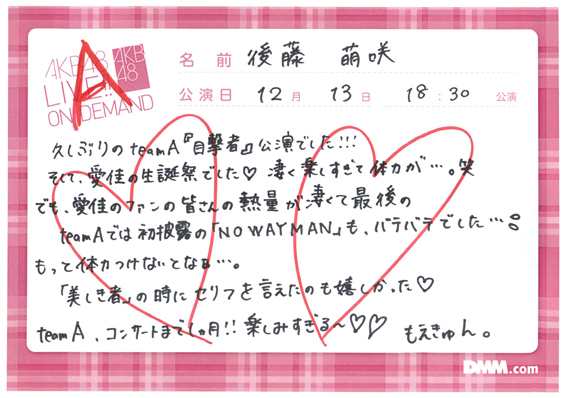 AKB48
LIVE!!
ON DEMAND
A
AKB
48
名前 後藤 萌咲
公演日 12月 13日 18:30 公演
久しぶりのteamA『目撃者』公演でした!!!
そして、愛佳の生誕祭でした♡ 凄く楽しすぎて体力が…。笑
でも、愛佳のファンの皆さんの熱量が凄くて最後の
teamAでは初披露の「NO WAY MAN」も、バテバテでした…
もって体力つけないとなぁ…。
「美しき者」の時にセリフを言えたのも嬉しかった♡
teamA、コンサートまで1ヵ月!! 楽しみすぎる〜♡♡ もえきゅん。
DMM.com